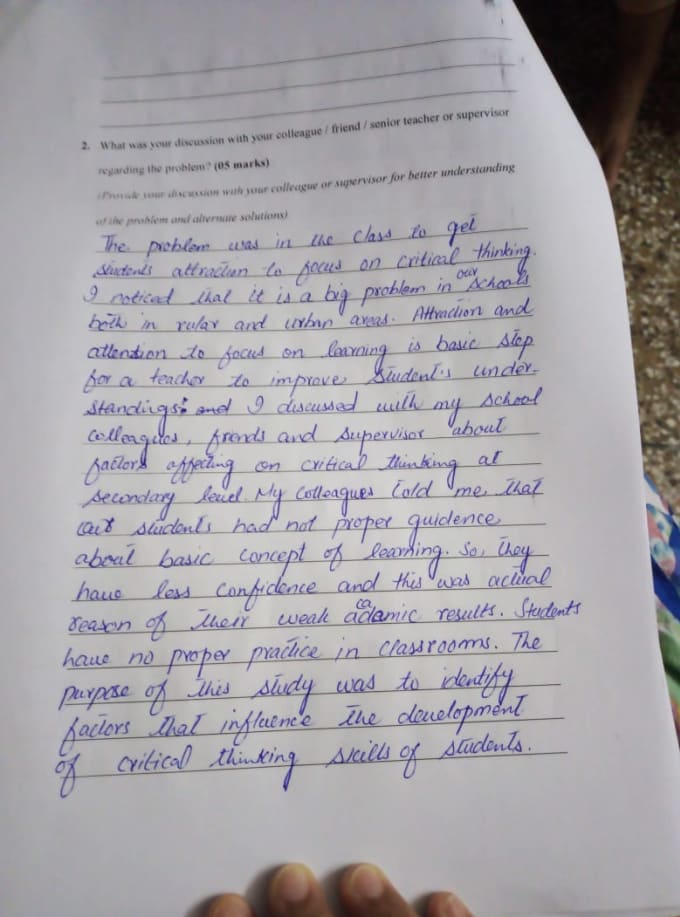 2. What was your discussion with your colleague / friend / senior teacher or supervisor
regarding the problem? (05 marks)
(Provide your discussion with your colleague or supervisor for better understanding
of the problem and alternate solutions)
The problem was in the class to get
students attraction to focus on critical thinking.
I noticed that it is a big problem in our schools
both in rular and urban areas. Attraction and
attendion to focus on learning is basic step
for a teacher to improve student's under-
standings and I discussed with my school
colleagues, frends and supervisor about
factors affecting on critical thinking at
secondary level. My Colleagues told me that
our students had not proper guidence
about basic concept of learning. So, they
have less confidence and this was actual
reason of their weak acadamic results. Students
have no proper practice in classrooms. The
purpose of this study was to identify
factors that influence the development
of critical thinking skills of students.